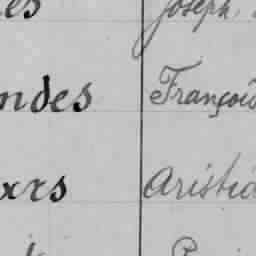 es Joseph
ndes François
xrs Aristid